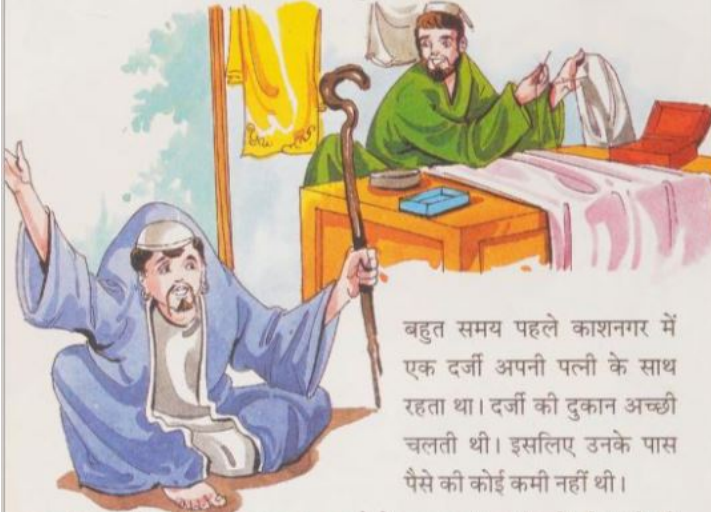 बहुत समय पहले काशनगर में
एक दर्जी अपनी पत्नी के साथ
रहता था। दर्जी की दुकान अच्छी
चलती थी। इसलिए उनके पास
पैसे की कोई कमी नहीं थी।